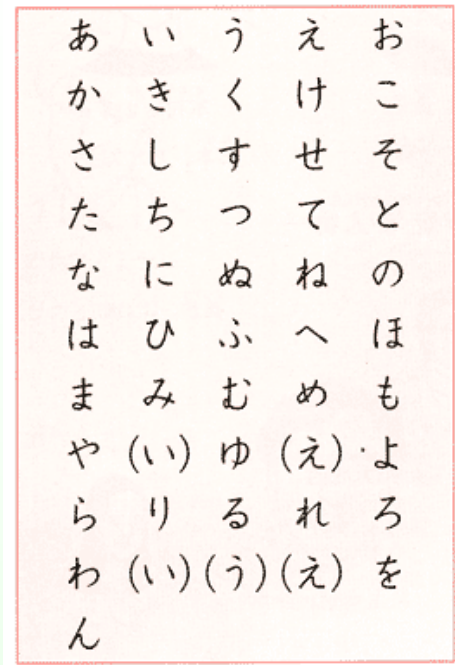 あ い う え お
か き く け こ
さ し す せ そ
た ち つ て と
な に ぬ ね の
は ひ ふ へ ほ
ま み む め も
や (い) ゆ (え) よ
ら り る れ ろ
わ (い) (う) (え) を
ん